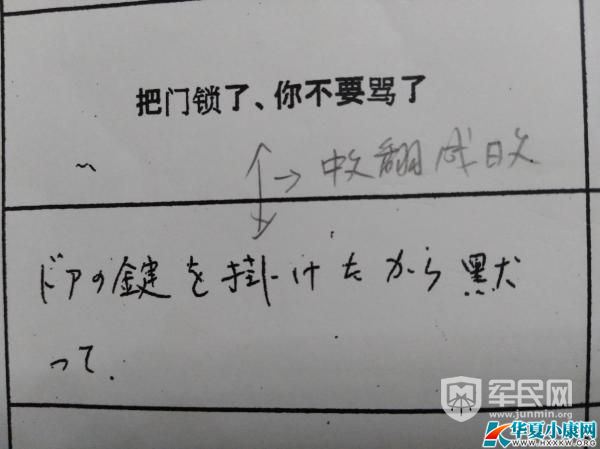 把门锁了、你不要骂了
~
→中文翻成日文
ドアの鍵を掛けたから黙
って.
军民网
www.junmin.org
华夏小康网
www.hxxkw.org